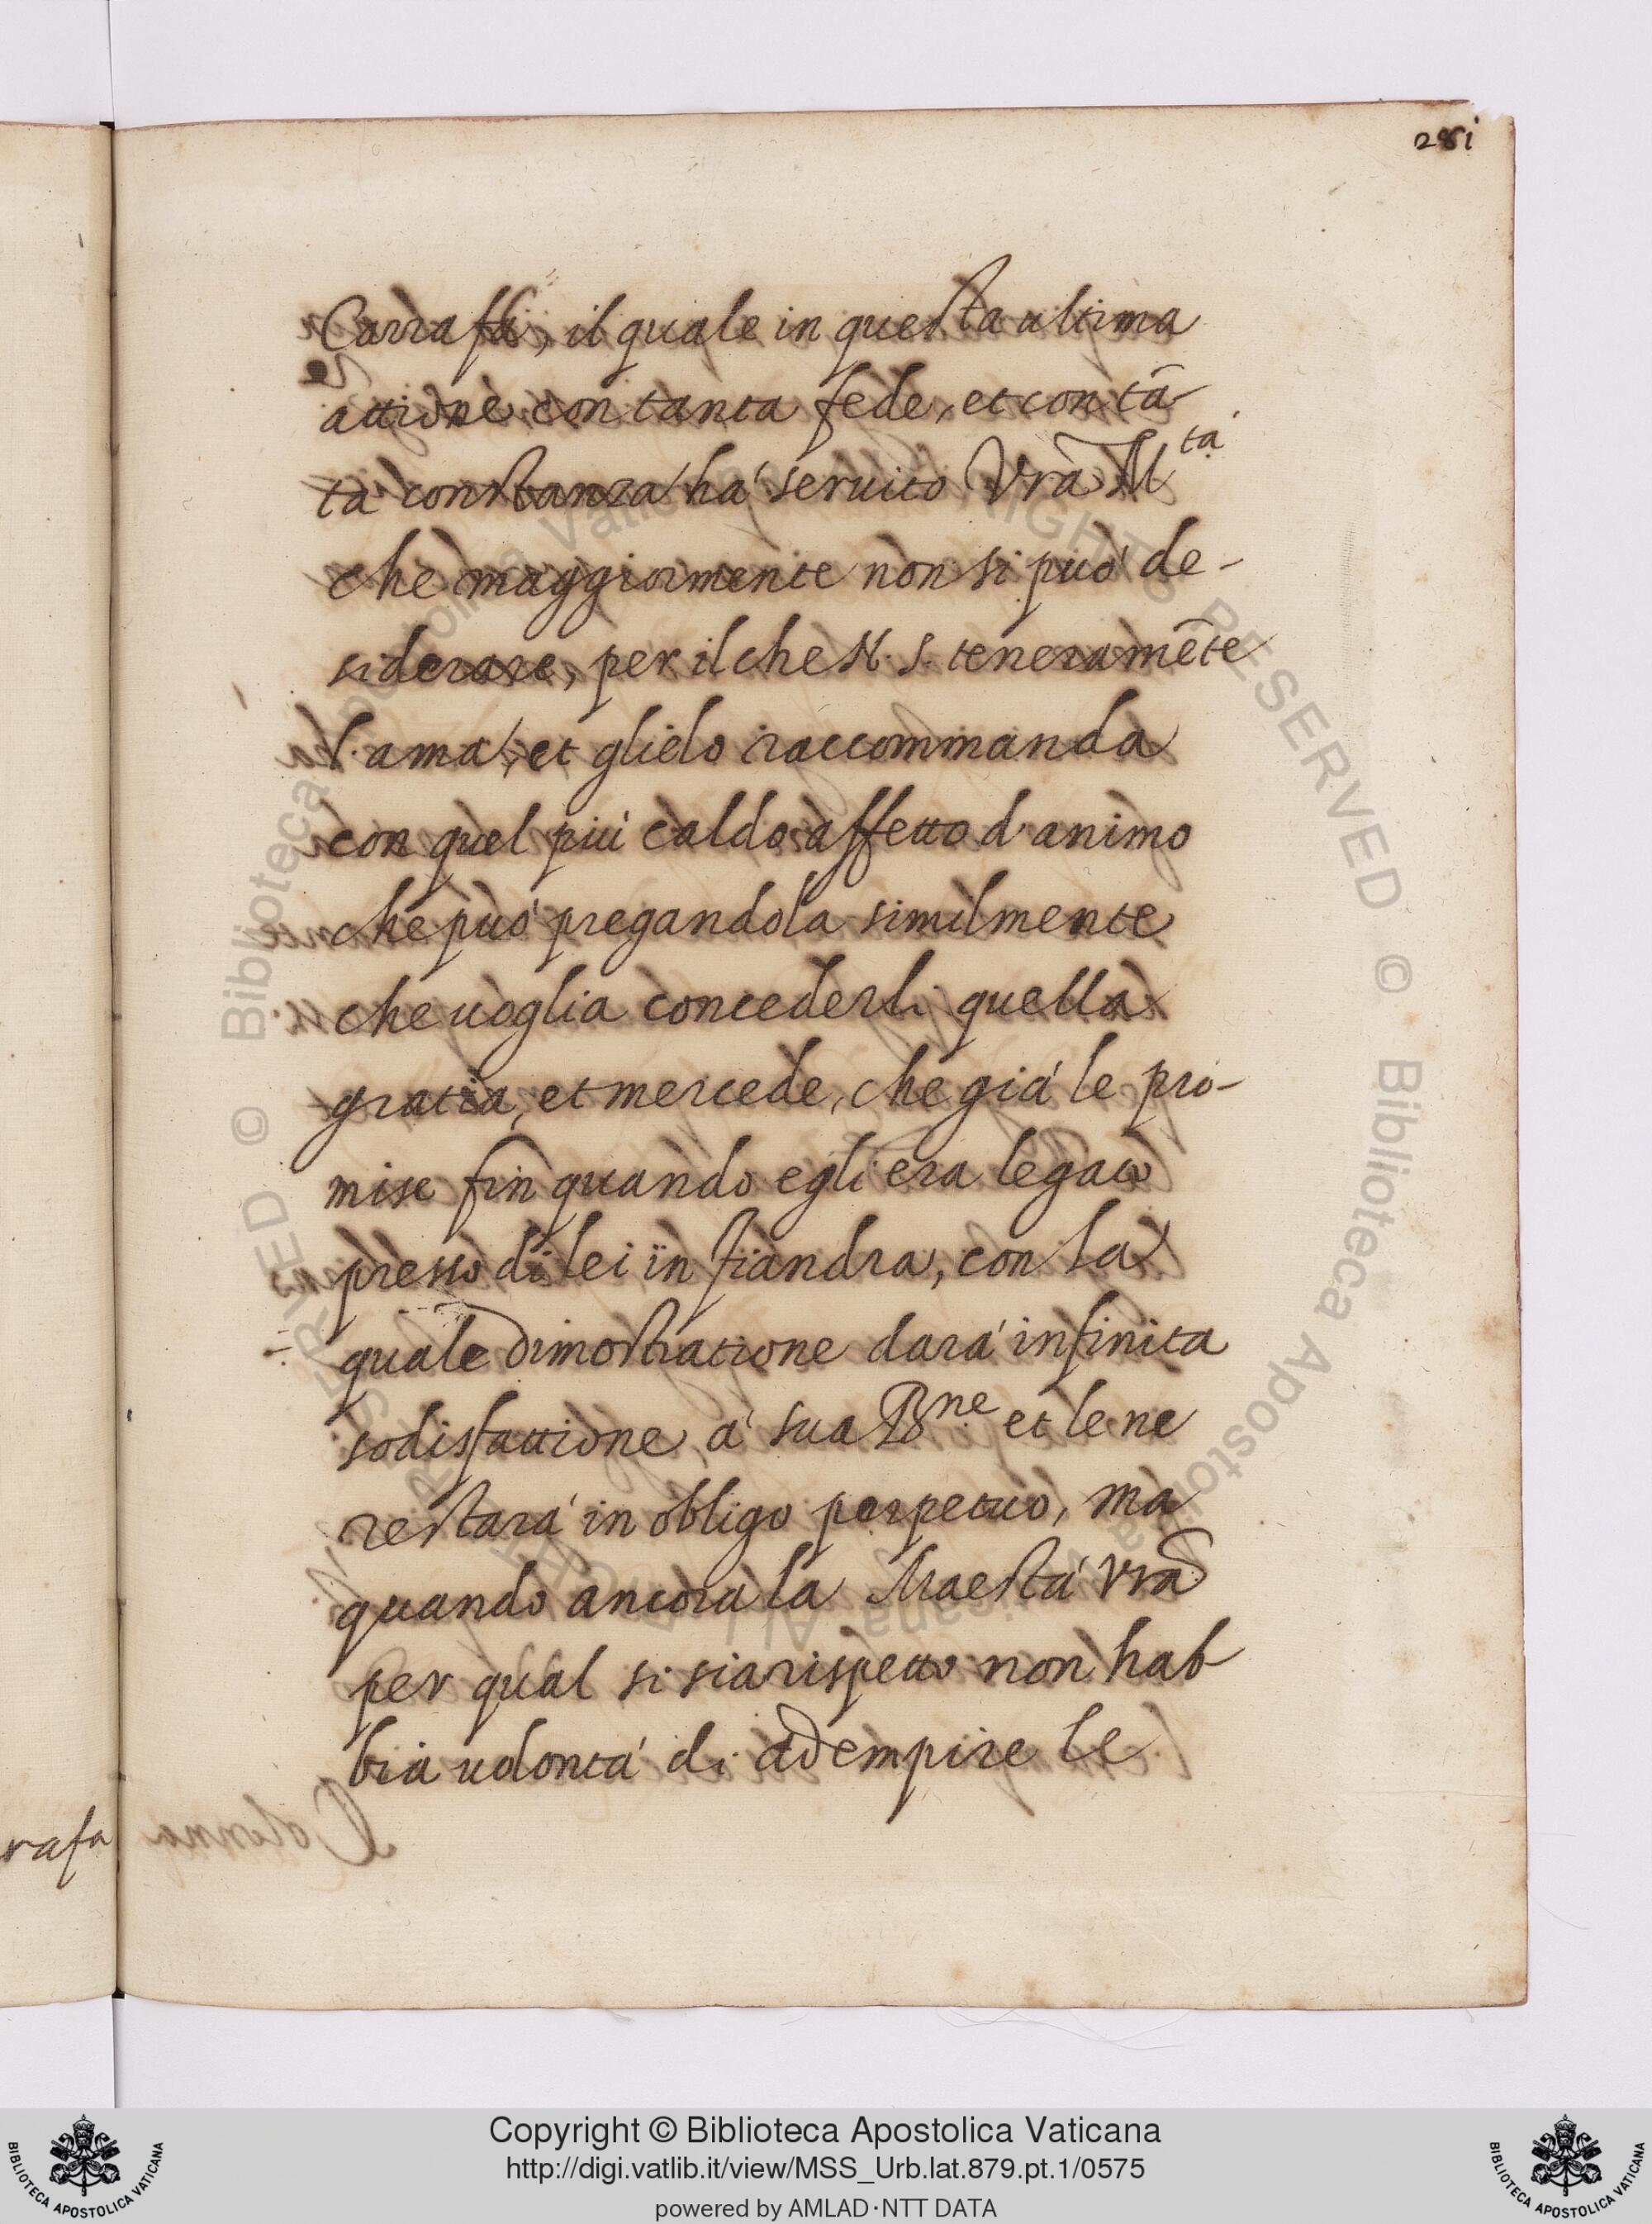 281
Carraffa, il quale in questa ultima
attione con tanta fede, et con tā-
ta constanza há seruito Vrã M.tá
che maggiormente non si può de-
siderare, per il che N. S. teneramēte
l'ama, et glielo raccommanda
con quel più caldo affetto d'animo
che può pregandola similmente
che uoglia concederli quella
gratia, et mercede, che giá le pro-
mise fin quando egli era legato
presso di lei in fiandra, con la
quale dimostratione dará infinita
sodisfattione á sua Bne et le ne
restará in obligo perpetuo, ma
quando ancora la Maestá Vrã
per qual si sia rispetto non hab
bia uolontá di adempire le
rafa
Copyright © Biblioteca Apostolica Vaticana
http://digi.vatlib.it/view/MSS_Urb.lat.879.pt.1/0575
powered by AMLAD·NTT DATA
BIBLIOTECA APOSTOLICA VATICANA
BIBLIOTECA APOSTOLICA VATICANA